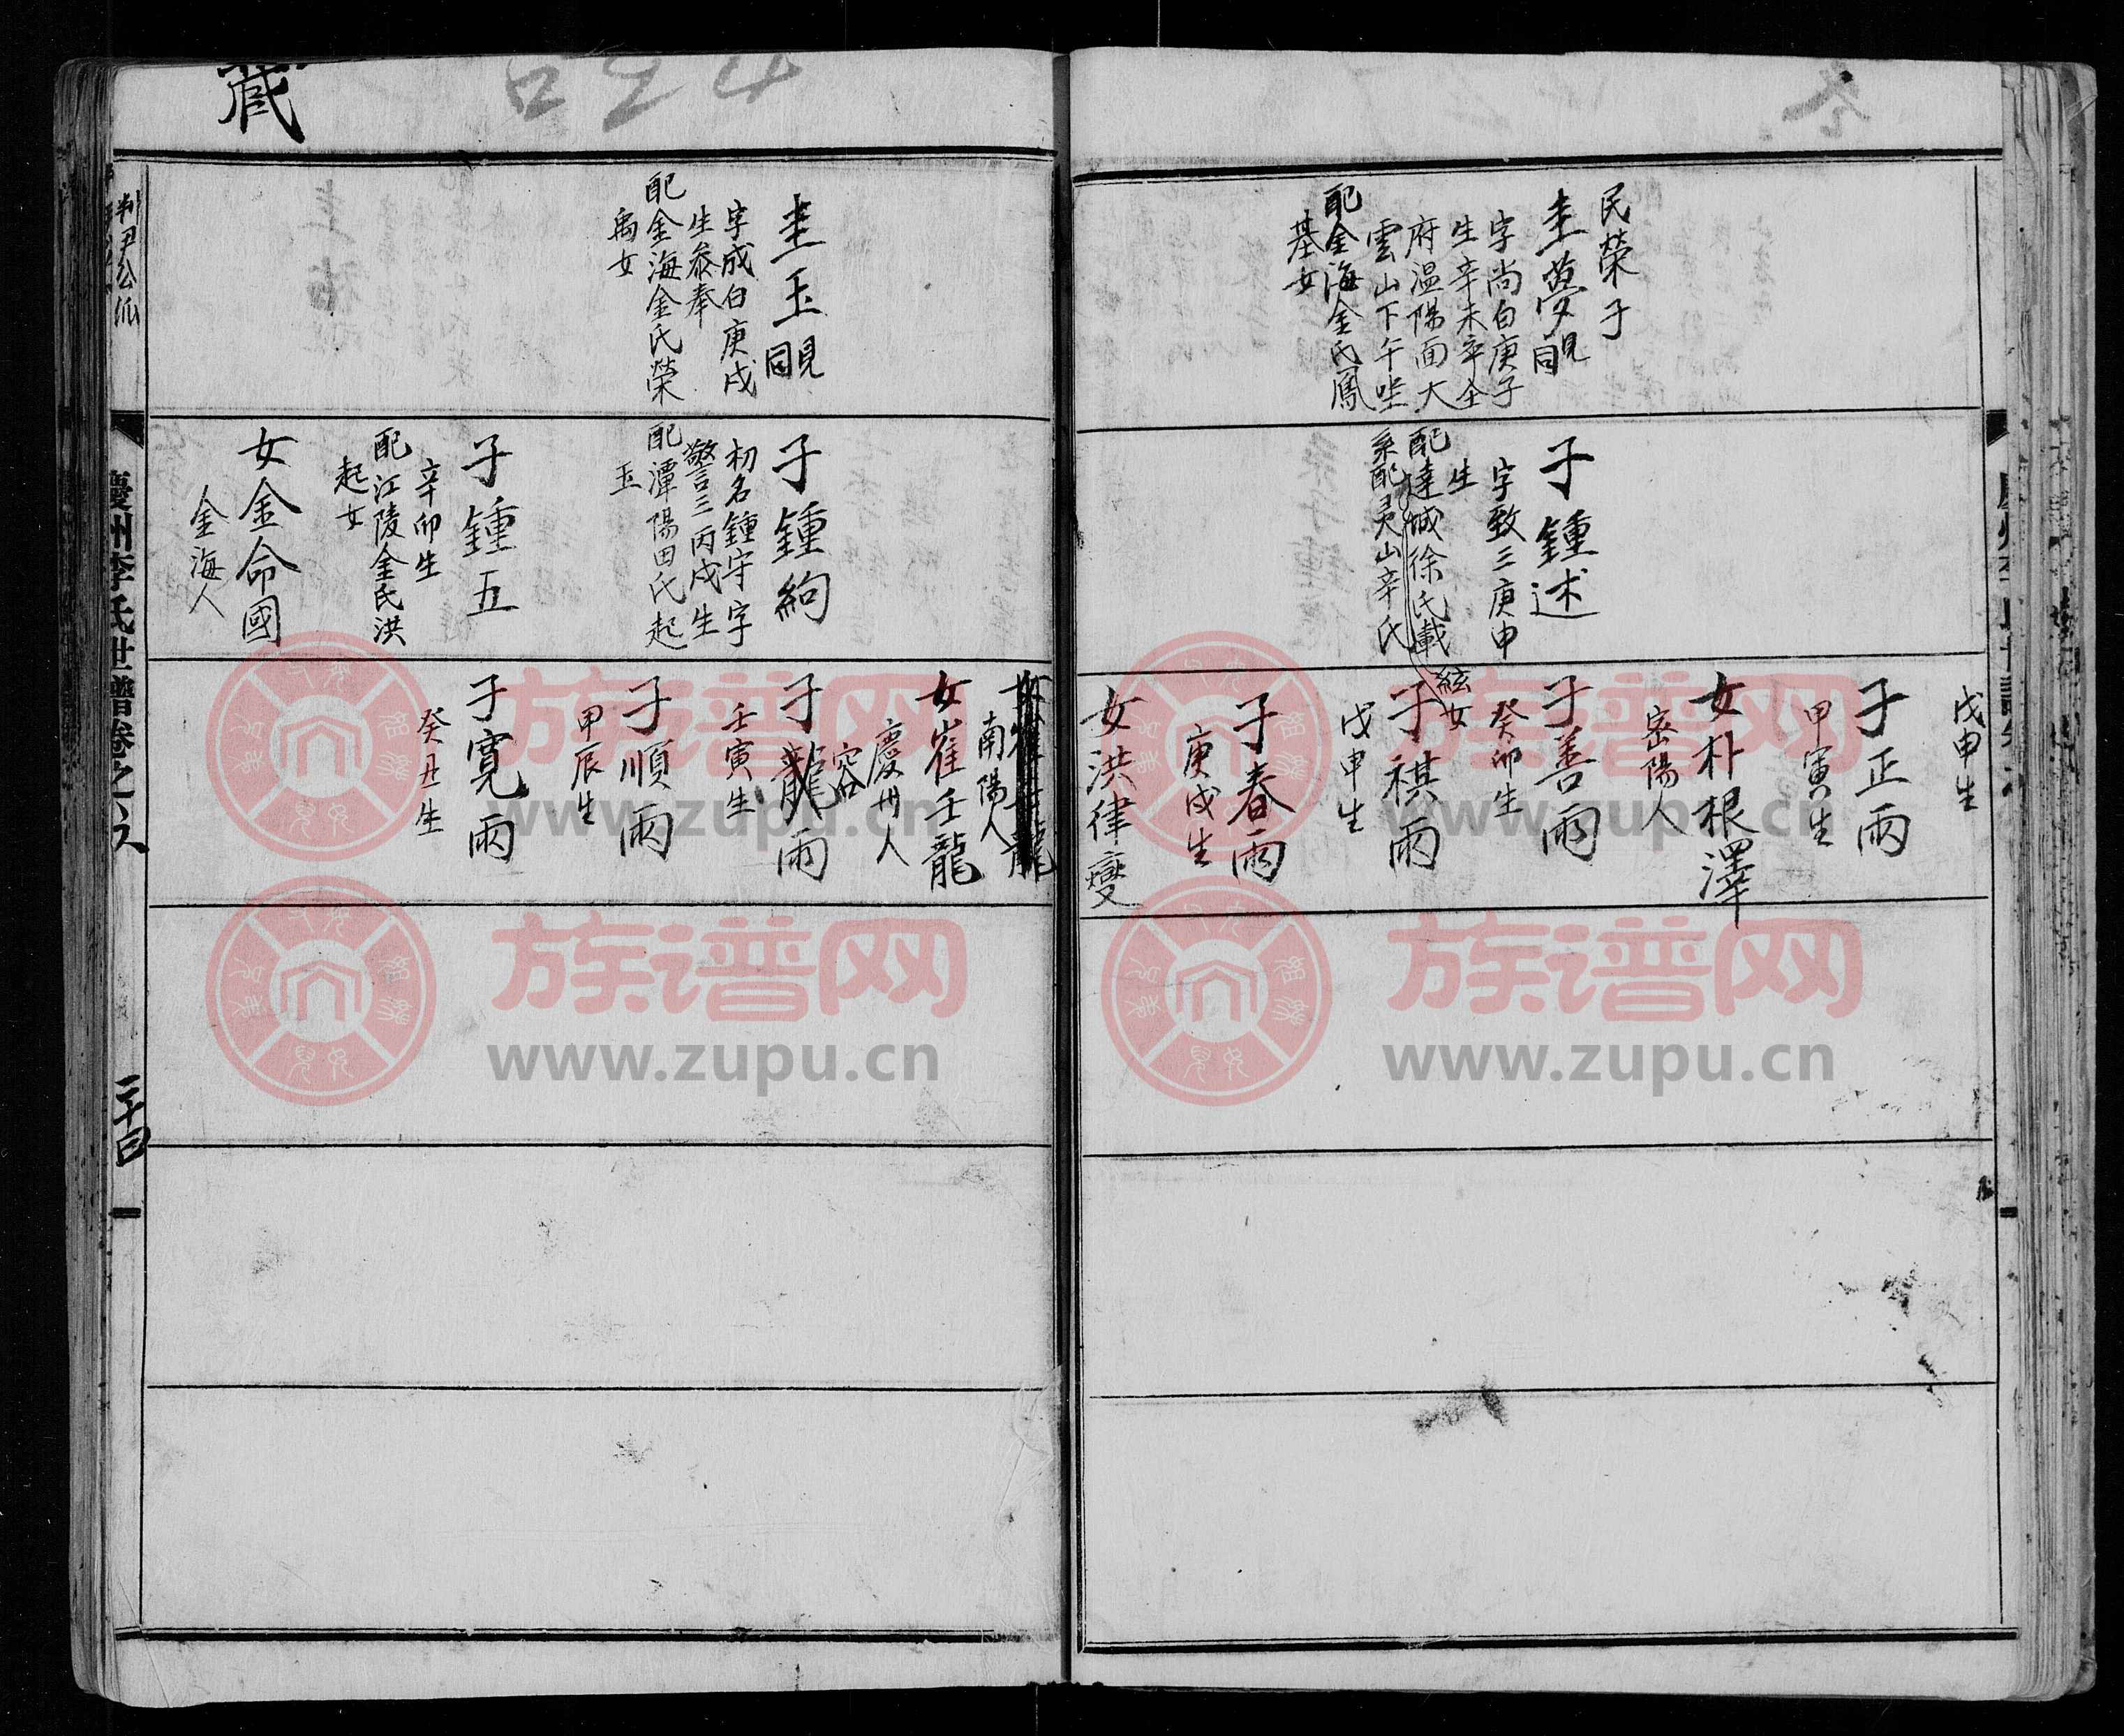 藏
民榮子
圭夢覞同
字尚白庚子
生辛未卒全
府温陽面大
雲山下午坐
配金海金氏鳳
基女
子鍾述
字致三庚申
生
配達城徐氏載
絃女
系配灵山辛氏
戊申生
子正雨
甲寅生
女朴根澤
密陽人
子善雨
癸卯生
子祺雨
戊申生
子春雨
庚戌生
女洪律燮
圭玉覞同
字成白庚戌
生叅奉
配金海金氏榮
禹女
子鍾絢
初名鍾守字
警三丙戌生
配潭陽田氏起
玉
子鍾五
辛卯生
配江陵金氏洪
起女
女金命國
金海人
南陽人
女崔壬龍
慶州人
容
子龍雨
壬寅生
子順雨
甲辰生
子寬雨
癸丑生
判尹公派
慶州李氏世譜卷之六
三十四
族谱网
www.zupu.cn
族谱网
www.zupu.cn
族谱网
www.zupu.cn
族谱网
www.zupu.cn